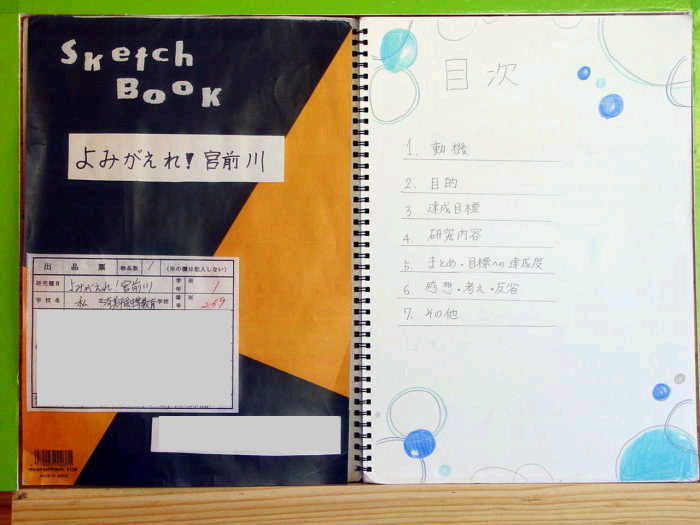 Sketch
Book
よみがえれ！宮前川
出品票 物品数 1 (※の欄は記入しない)
研究題目 よみがえれ！宮前川 学年 1
学校名 私 学校 269
目次
1. 動機
2. 目的
3 達成目標
4. 研究内容
5. まとめ・目標への達成度
6. 感想・考え・反省
7. その他